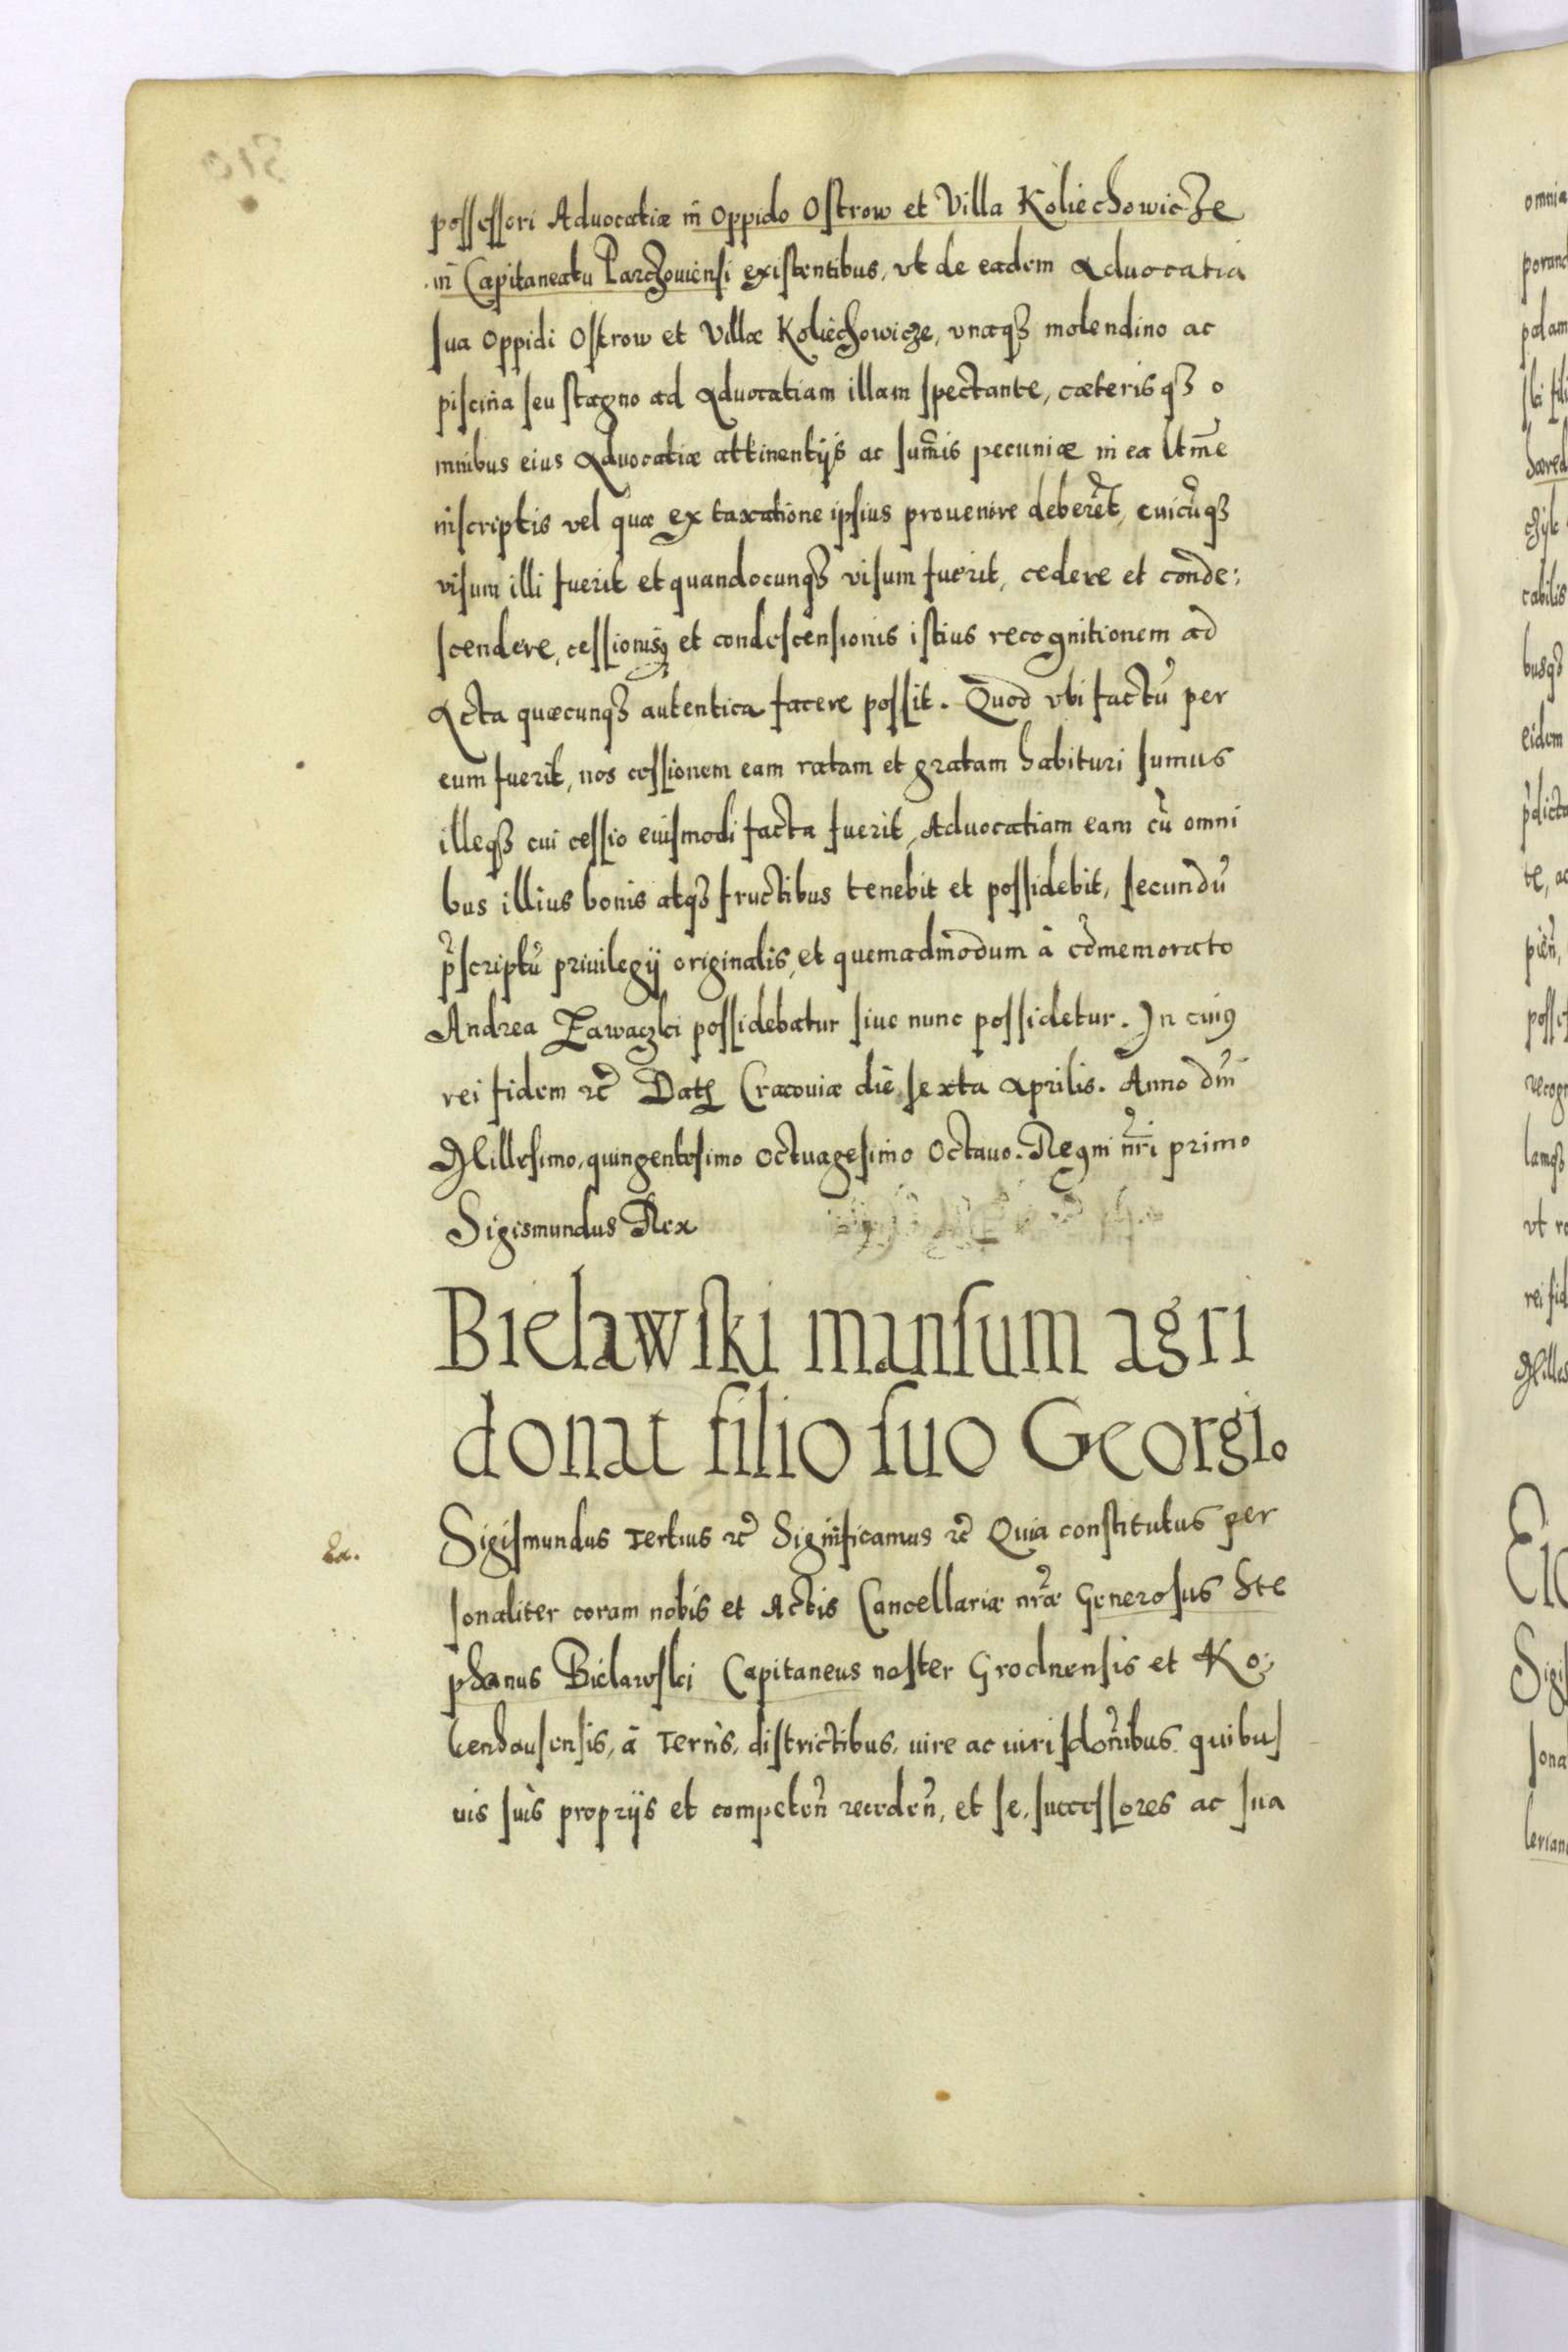 possessori Aduocatiæ in Oppido Ostrow et Villa Koliechowicze
in Capitaneatu Parczouiensi existentibus, vt de eadem Aduocatia
sua Oppidi Ostrow et Villæ Koliechowicze, vnaqȝ molendino ac
piscina seu stagno ad Aduocatiam illam spectante, cæterisqȝ o
mnibus eius Aduocatiæ attinentijs ac sum̃is pecuniæ in ea ltm̃e
inscriptis vel quæ ex taxatione ipsius prouenire deberẽt, cuicũqȝ
visum illi fuerit et quandocunqȝ visum fuerit, cedere et conde:
scendere, cessionisqȝ et condescensionis istius recognitionem ad
Acta quæcunqȝ autentica facere possit. Quod vbi factũ per
eum fuerit, nos cessionem eam ratam et gratam habituri sumus
illeqȝ cui cessio eiusmodi facta fuerit, Aduocatiam eam cũ omni
bus illius bonis atqȝ fructibus tenebit et possidebit, secundũ
p̃scriptũ priuilegij originalis, et quemadmodum à cõmemorato
Andrea Zawaczki possidebatur siue nunc possidetur. In cuiꝰ
rei fidem ꝛc̃ Datꝭ Cracouiæ die sexta Aprilis. Anno dñi
Millesimo, quingentesimo Octuagesimo Octauo. Regni nr̃i primo
Sigismundus Rex
Bielawſki manſum agri
donat filio ſuo Georgio
Sigismundus Tertius ꝛc̃ Significamus ꝛc̃ Quia constitutus per
La.
sonaliter coram nobis et Actis Cancellariæ nr̃æ Generosus Ste
phanus Bielawski Capitaneus noster Grodnensis et Ko:
kenhausensis, à Terris, districtibus, iure ac iurisdoñibus quibus
uis suis proprijs et competeñ recedeñ, et se, successores ac sua